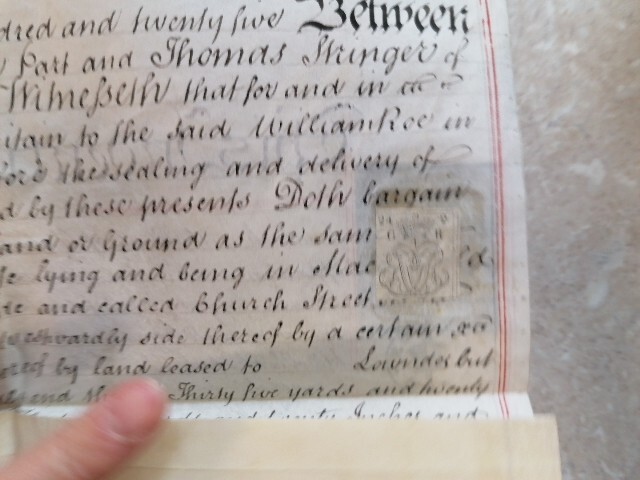 dred and twenty five Between
Part and Thomas Stringer of
Witnesseth that for and in
itain to the said William Roe in
fore the sealing and delivery of
d by these presents Doth bargain
and or Ground as the sam
lying and being in Mac
and called Church Street
wardly side thereof by a certain
ereof by land leased to Lowndes but
end th Thirty five yards and twenty
Inches and
G R